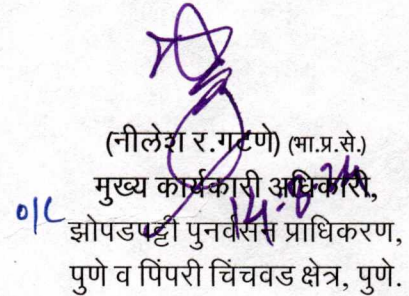 (नीलेश र.गटणे) (भा.प्र.से.)
मुख्य कार्यकारी अधिकारी,
o/c झोपडपट्टी पुनर्वसन प्राधिकरण,
पुणे व पिंपरी चिंचवड क्षेत्र, पुणे.